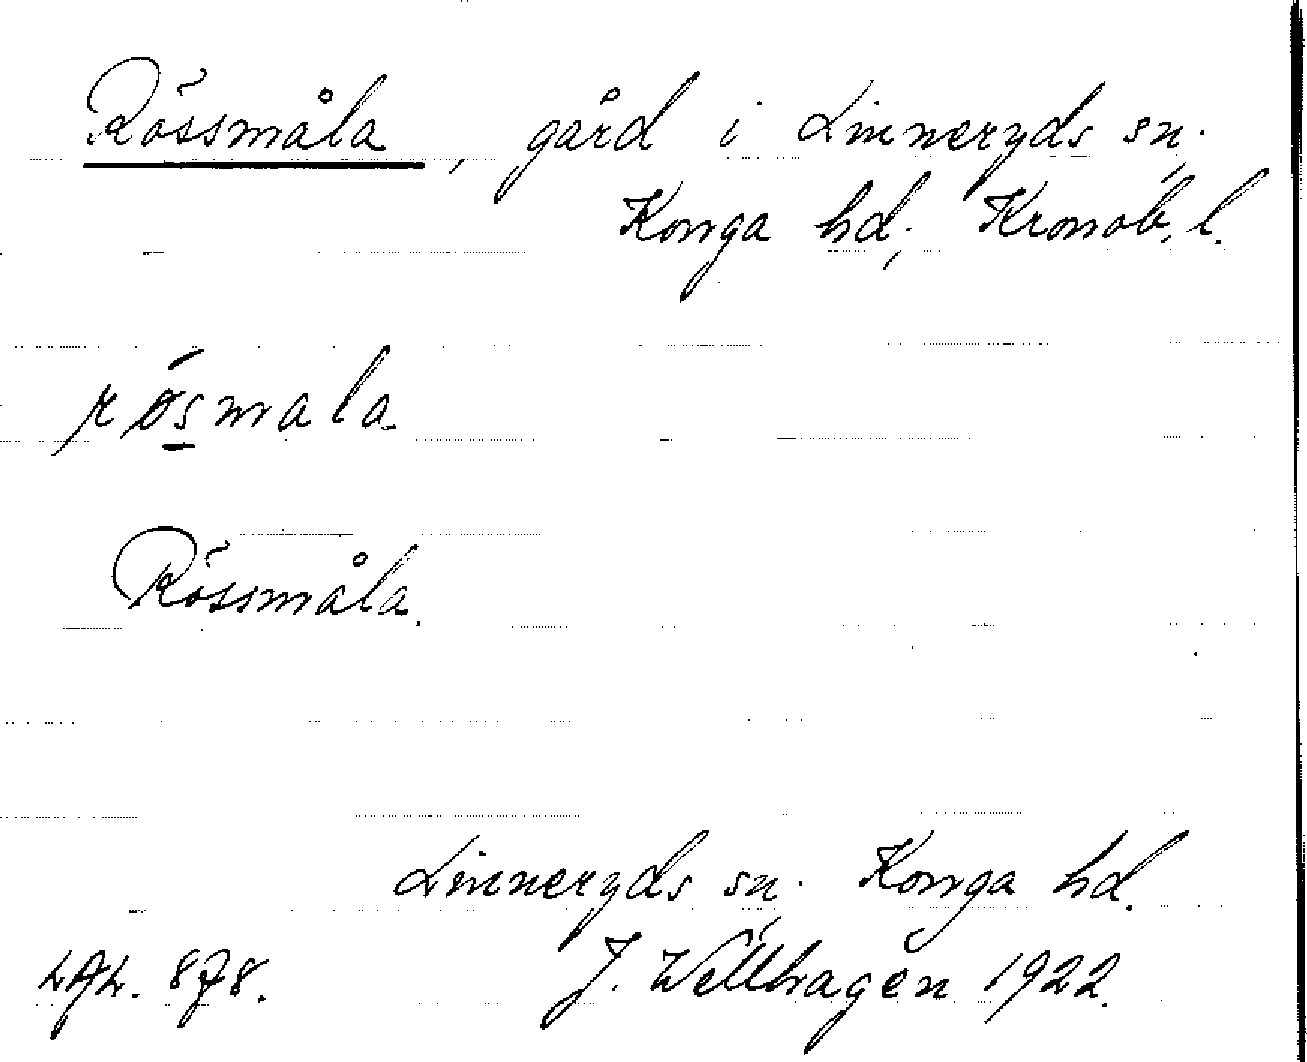 Rössmåla, gård i Linneryds sn.
Konga hd, Kronob. l.
rǿs̱mala
Rössmåla.
Linneryds sn. Konga hd.
J. Wellhagen 1922.